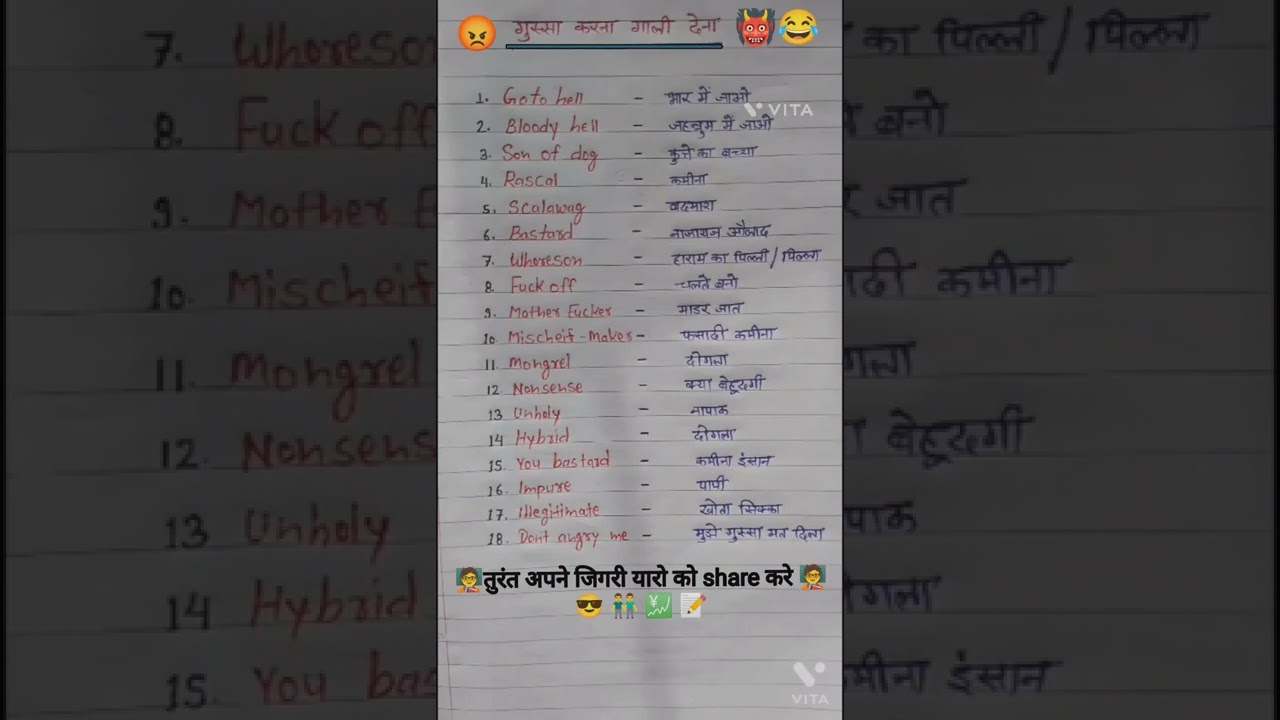 😡 गुस्सा करना गाली देना 👹😂
VITA
1. Go to hell - भार में जाओ
2. Bloody hell - जहन्नुम में जाओ
3. Son of dog - कुत्ते का बच्चा
4. Rascal - कमीना
5. Scalawag - बदमाश
6. Bastard - नाजायज औलाद
7. Whoreson - हाराम का पिल्ली / पिल्ला
8. Fuck off - चलते बनो
9. Mother Fucker - माडर जात
10. Mischeif-maker - फसादी कमीना
11. Mongrel - दोगला
12. Nonsense - क्या बेहूदगी
13 Unholy - नापाक
14 Hybrid - दोगला
15. You bastard - कमीना इंसान
16. Impure - पापी
17. Illegitimate - खोता सिक्का
18. Dont angry me - मुझे गुस्सा मत दिला
🧑‍🏫तुरंत अपने जिगरी यारो को share करे 🧑‍🏫
😎 👬 💹 📝
VITA